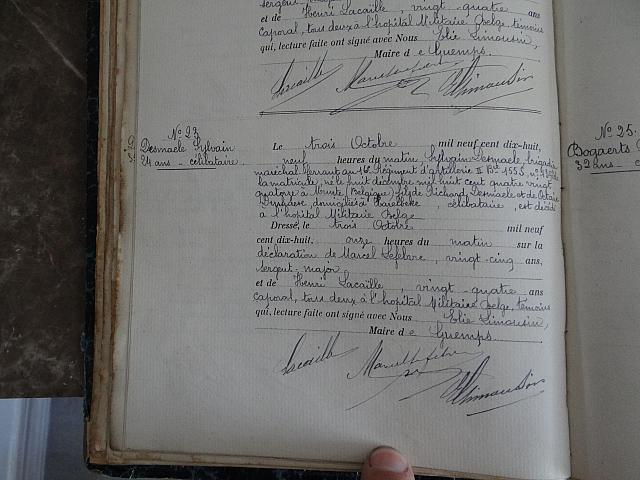 et de Henri Lacaille, vingt-quatre ans
caporal, tous deux à l'hôpital Militaire Belge, témoins
qui, lecture faite ont signé avec Nous Elie Limousin,
Maire de Guemps.
Lacaille
N° 23
Desmaele Sylvain
24 ans - célibataire.
Le trois Octobre mil neuf cent dix-huit,
neuf heures du matin, Sylvain Desmaele, brigadier
maréchal ferrant au 16e Régiment d'artillerie
la matricule, né le huit décembre mil huit cent quatre vingt
quatorze à (Belgique) fils de Richard Desmaele et de Octavie
domicilié à Harelbeke célibataire, est décédé
à l'hôpital Militaire Belge
Dressé, le trois Octobre mil neuf
cent dix-huit. onze heures du matin sur la
déclaration de Marcel Lefebvre, vingt-cinq ans,
sergent-major
et de Henri Lacaille, vingt-quatre ans
caporal, tous deux à l'hôpital Militaire Belge, témoins
qui, lecture faite ont signé avec Nous Elie Limousin,
Maire de Guemps.
Lacaille Marcel Lefebvre Limousin
N° 25.
Bogaerts
32 ans - c